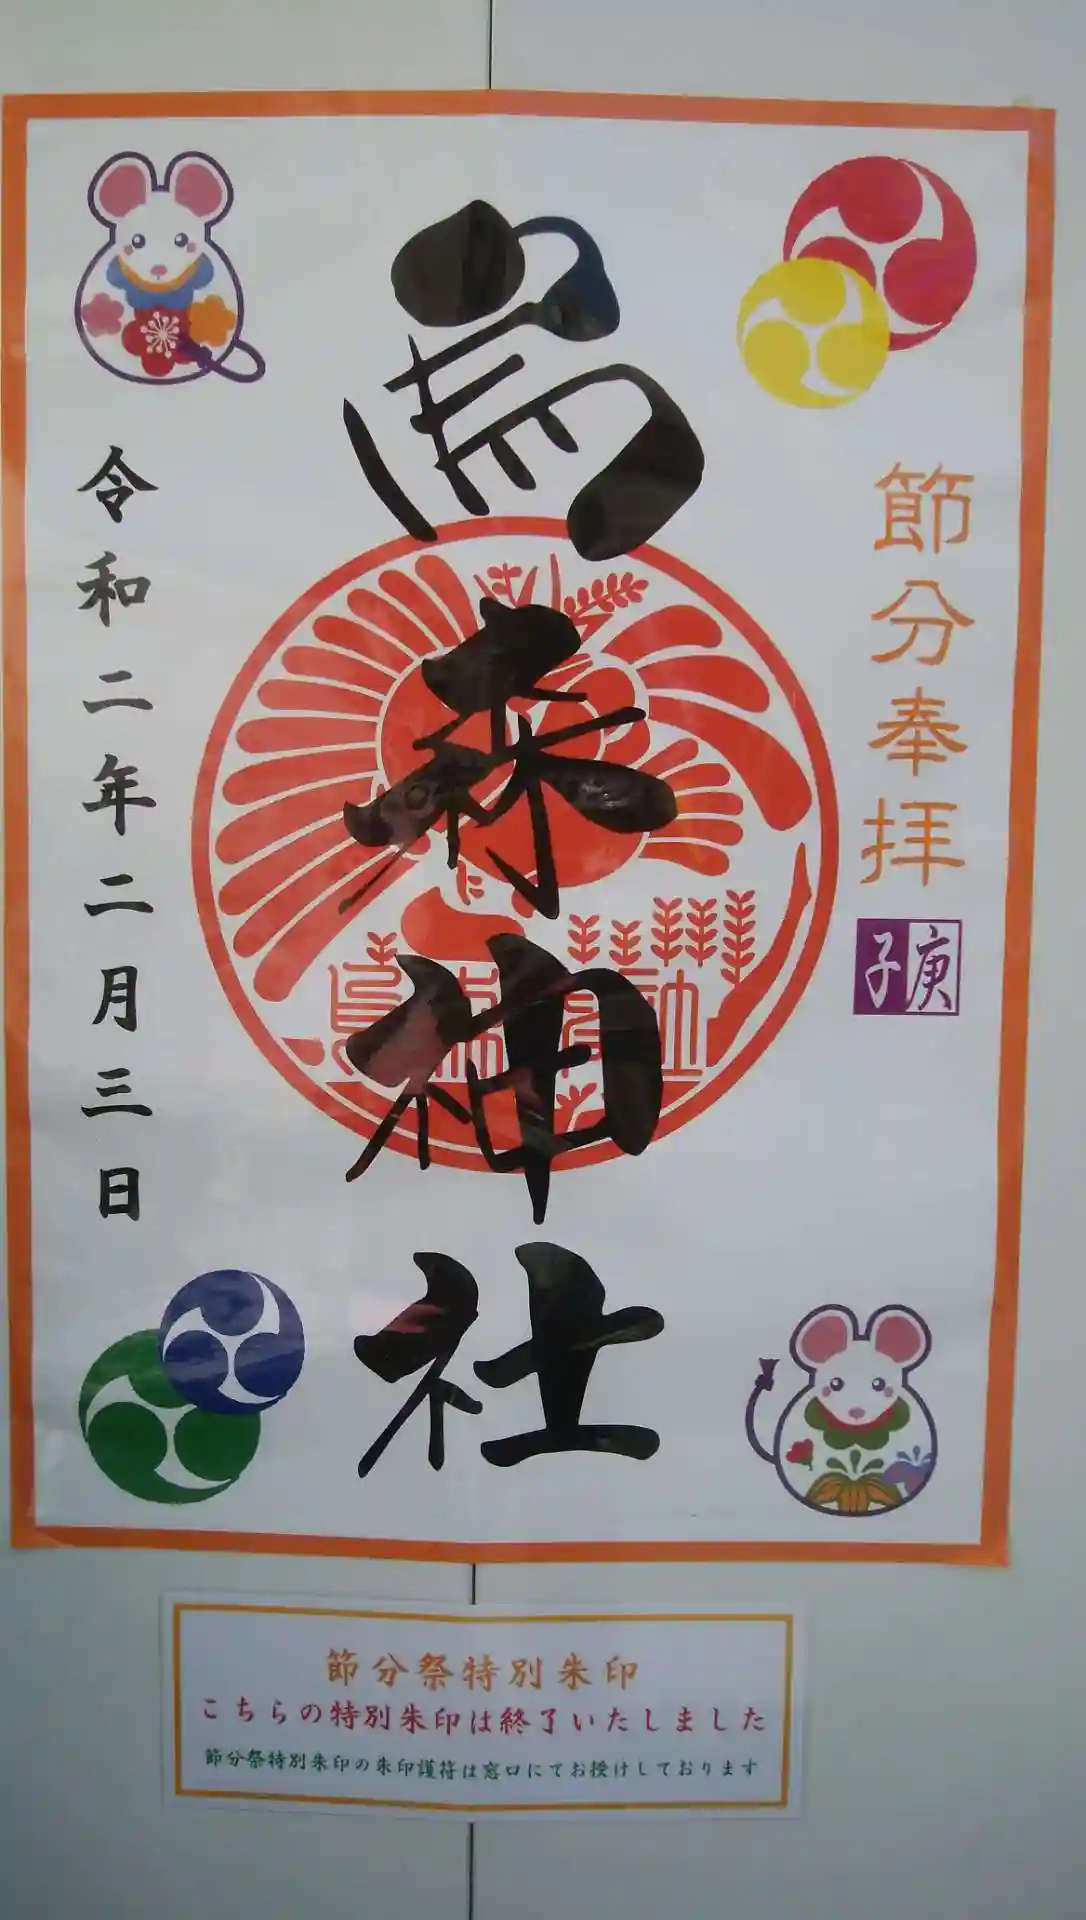 節分奉拝
庚子
烏森神社
令和二年二月三日
節分祭特別朱印
こちらの特別朱印は終了いたしました
節分祭特別朱印の朱印護符は窓口にてお授けしております